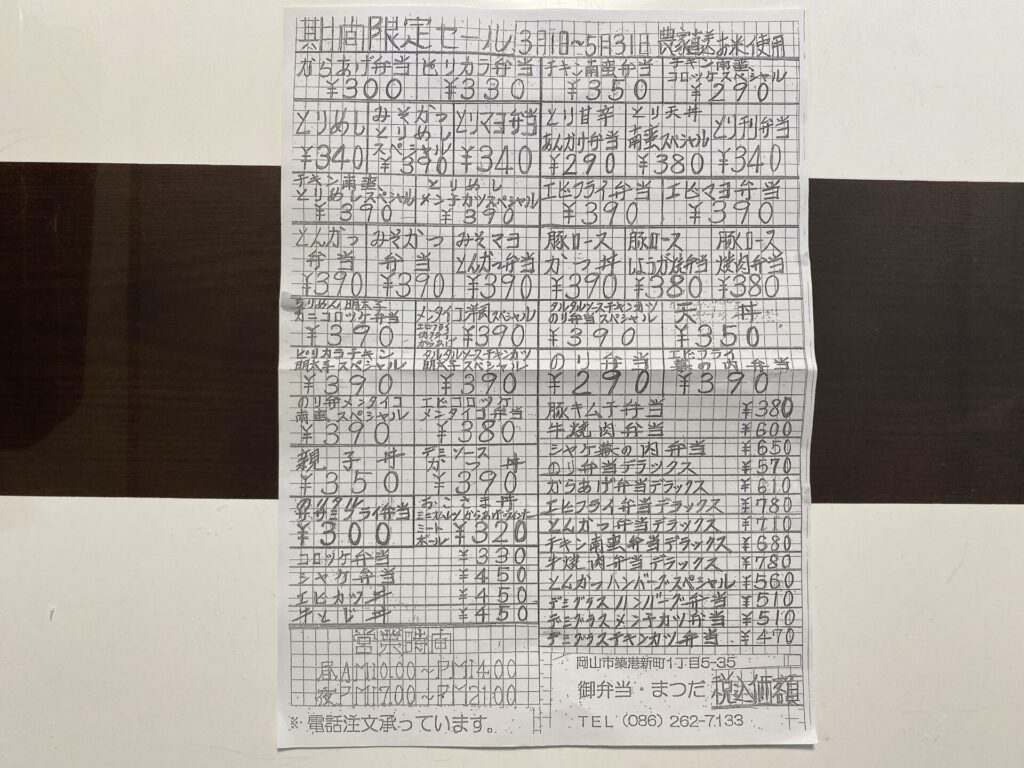 期間限定セール 3月1日~5月31日 農家直送お米使用
からあげ弁当 ピリカラ弁当 チキン南蛮弁当 チキン南蛮
コロッケスペシャル
¥300 ¥330 ¥350 ¥290
とりめし みそかつ とりマヨ弁当 とり甘辛 とり天丼
とりめし あんかけ弁当 南蛮スペシャル
スペシャル
¥340 ¥390 ¥340 ¥290 ¥380 ¥340
チキン南蛮 とりめし エビフライ弁当 エビマヨ弁当
とりめしスペシャル メンチカツスペシャル
¥390 ¥390 ¥390 ¥390
とんかつ みそかつ みそマヨ 豚ロース 豚ロース 豚ロース
弁当 弁当 とんかつ弁当 かつ丼 しょうが焼弁当 焼肉弁当
¥390 ¥390 ¥390 ¥390 ¥380 ¥380
とりめし明太子 メンタイコ洋風スペシャル タルタルソースチキンカツ 天丼
カニコロッケ弁当 のり弁当スペシャル
¥390 ¥390 ¥390 ¥350
ピリカラチキン タルタルソースチキンカツ のり弁当 エビフライ
明太子スペシャル 明太子スペシャル 幕の内弁当
¥390 ¥390 ¥290 ¥390
のり弁メンタイコ エビコロッケ
南蛮スペシャル メンタイコ弁当
¥390 ¥380
親子丼 デミソース
かつ丼
¥350 ¥390
¥300 ミート
ボール ¥320
コロッケ弁当 ¥330
シャケ弁当 ¥450
エビカツ丼 ¥450
¥450
豚キムチ弁当 ¥380
牛焼肉弁当 ¥600
シャケ幕の内弁当 ¥650
のり弁当デラックス ¥570
からあげ弁当デラックス ¥610
エビフライ弁当デラックス ¥780
とんかつ弁当デラックス ¥710
チキン南蛮弁当デラックス ¥680
牛焼肉弁当デラックス ¥780
とんかつハンバーグスペシャル ¥560
デミグラスハンバーグ弁当 ¥510
デミグラスメンチカツ弁当 ¥510
デミグラスチキンカツ弁当 ¥470
営業時間
昼AM10:00~PM14:00
夜PM17:00~PM21:00
※電話注文承っています。
岡山市築港新町1丁目5-35
御弁当・まつだ 税込価額
TEL (086) 262-7133